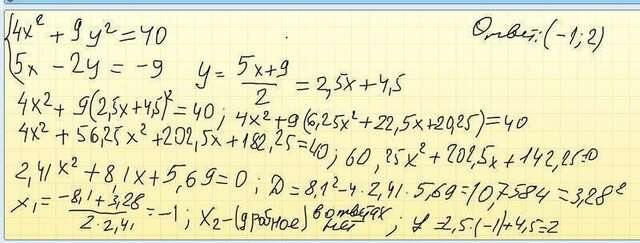 4x² + 9y² = 40
Ответ: (-1; 2)
5x - 2y = -9   y = (5x+9)/2 = 2,5x + 4,5
4x² + 9(2,5x + 4,5)² = 40 ; 4x² + 9(6,25x² + 22,5x + 20,25) = 40
4x² + 56,25x² + 202,5x + 182,25 = 40 ; 60,25x² + 202,5x + 142,25 = 0
2,41x² + 8,1x + 5,69 = 0 ; D = 8,1² - 4·2,41·5,69 = 10,7584 = 3,28²
x₁ = (-8,1 + 3,28)/(2·2,41) = -1 ; x₂ - (дробное) в ответах нет ; y = 2,5·(-1) + 4,5 = 2